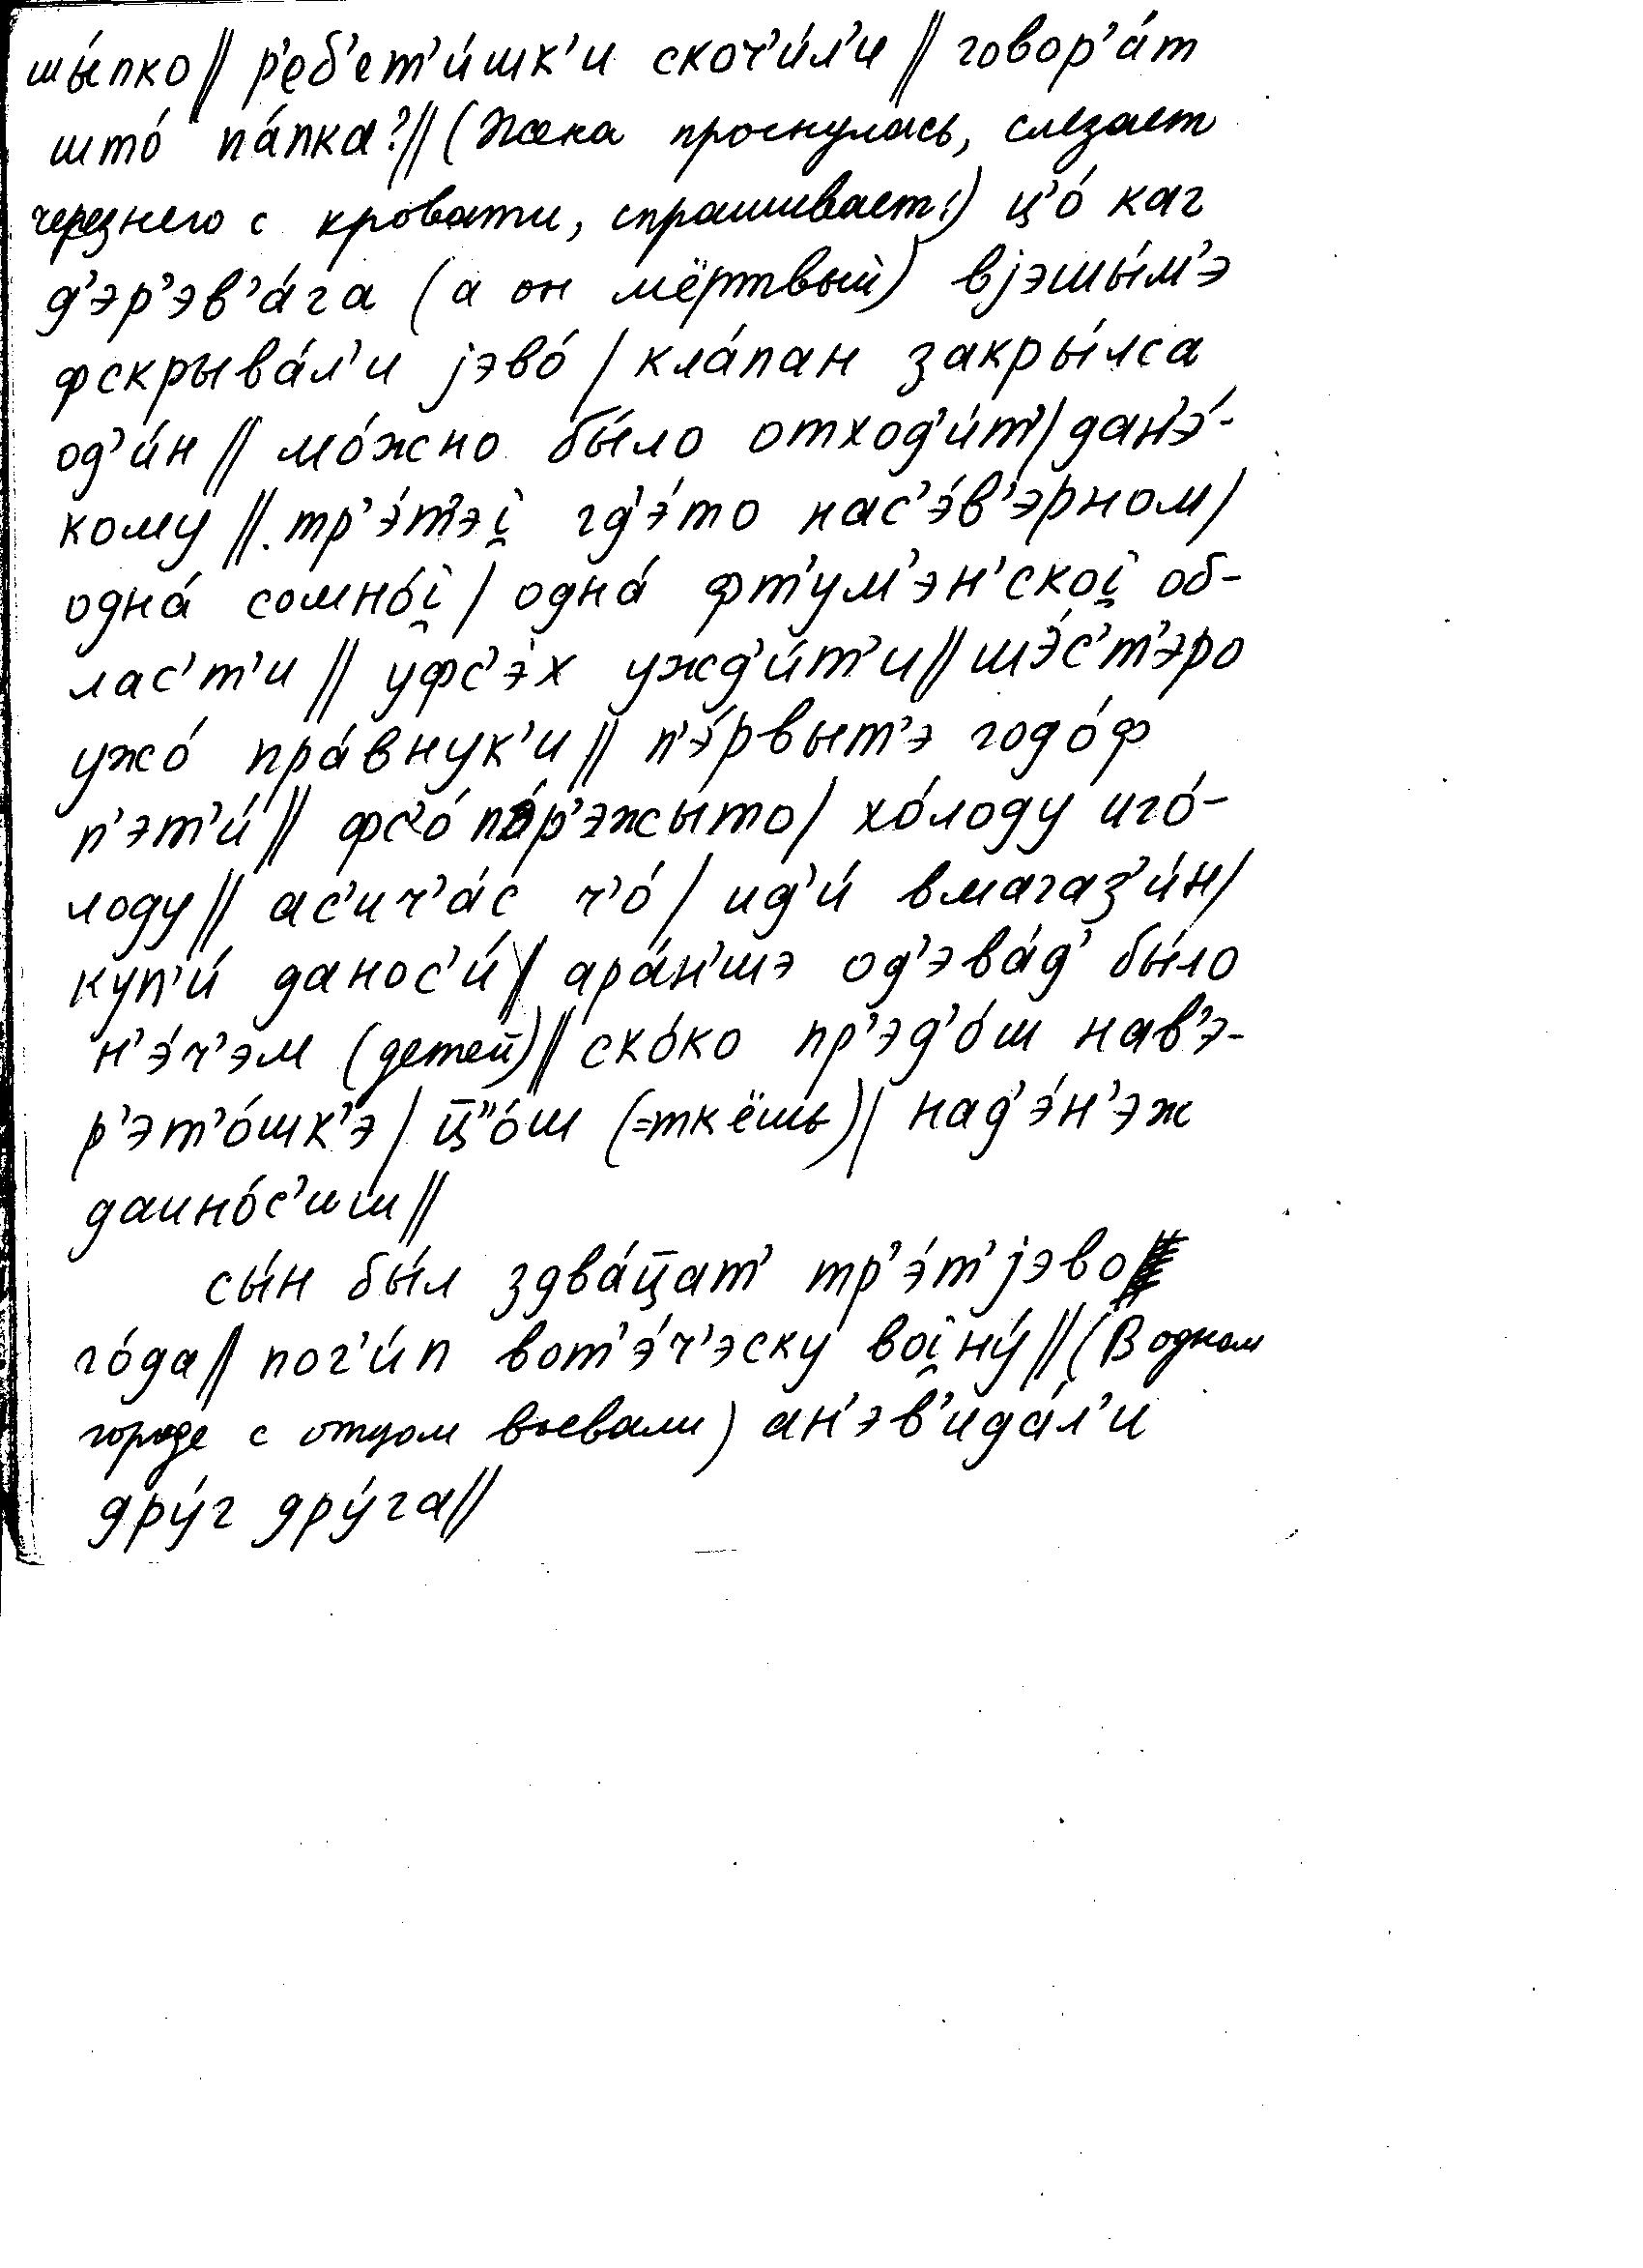 шы́пко // р’еб’ет’и́шк’и скоч’и́л’и // говор’а́т
што́ па́пка? // (Жена проснулась, слезает
через него с кровати, спрашивает:) ц’о́ каг
д’эр’эв’а́га (а он мёртвый) вjэшы́м’э
фскрыва́л’и jэво́ / кла́пан закры́лса
од’и́н // мо́жно бы́ло отход’и́т’ / дан’э́-
кому // тр’э́т’эi̯ гд’э́то нас’э́в’эрном /
одна́ сомно́i̯ / одна́ фт’ум’э́н’скоi̯ об-
лас’т’и // уфс’э́х ужд’и́т’и // шэ́с’т’эро
ужо́ пра́внук’и // п’э́рвыт’э годо́ф
п’эт’и́ // фс’о́ п’эр’эжы́то / хо́лоду иго́-
лоду // ас’ич’а́с ч’о́ / ид’и́ вмагаз’и́н /
куп’и́ данос’и́ // ара́н’шэ од’эва́д’ бы́ло
н’э́ч’эм (детей) // ско́ко пр’эд’о́ш нав’э-
р’эт’о́шк’э / ц̄’’о́ш (=ткёшь) / над’э́н’эж
даино́с’иш //
сы́н бы́л здва́ц̄ат’ тр’э́т’jэво
го́да // пог’и́п вот’э́ч’эску воi̯ну́ // (В одном
городе с отцом воевали) ан’эв’ида́л’и
дру́г дру́га //